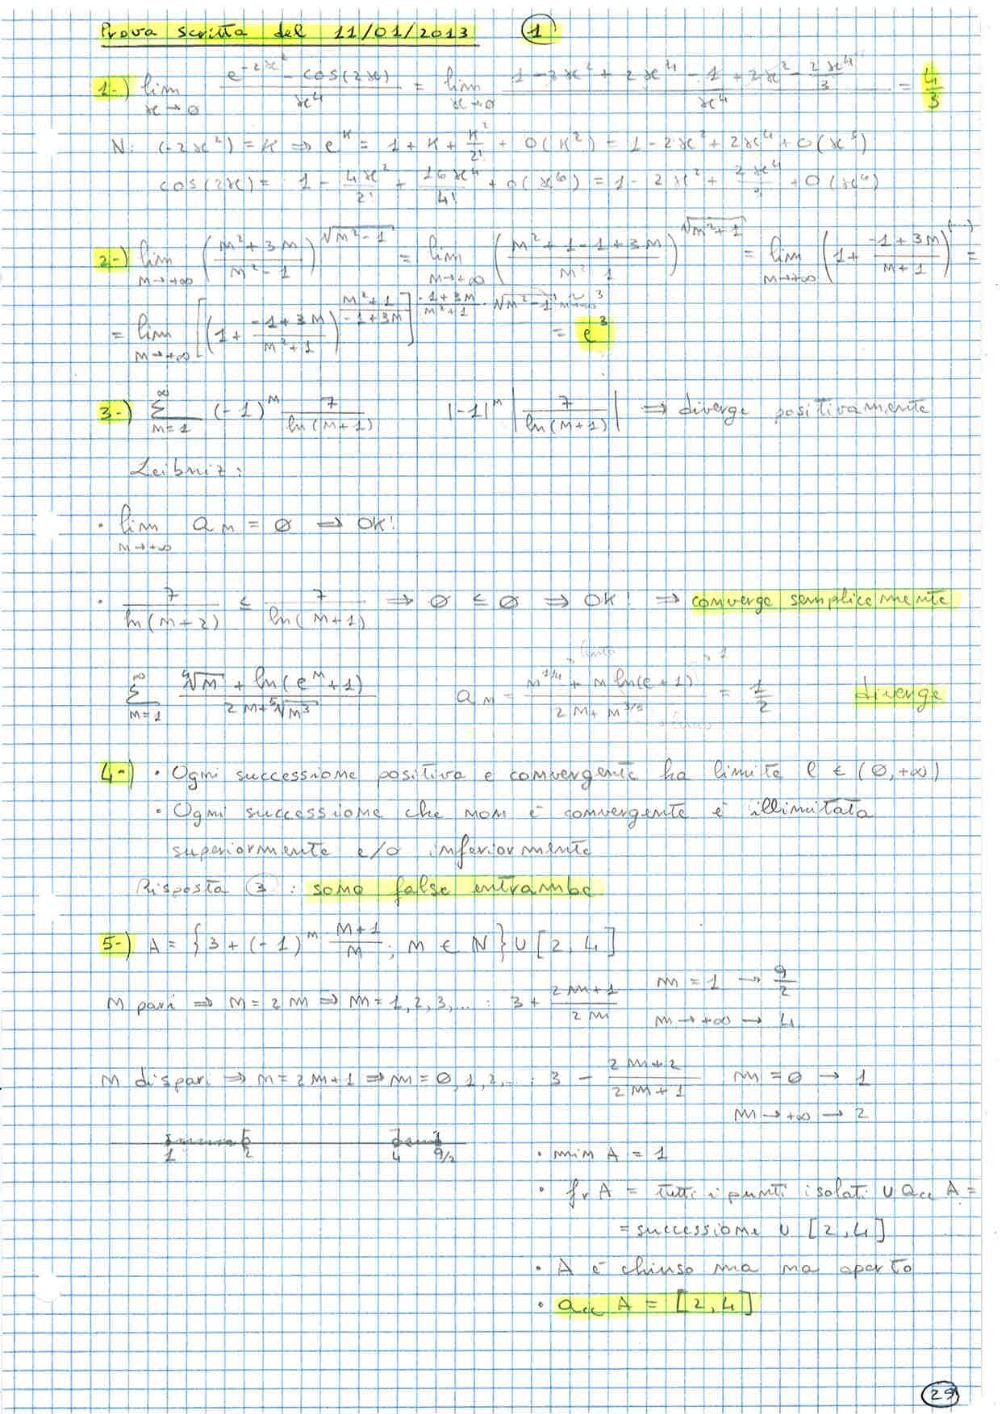 Prova scritta del 11/01/2013 1
1-) lim x→0 (e^(-2x²) - cos(2x))/x⁴ = lim x→0 (1-2x²+2x⁴-1+2x²-2x⁴/3)/x⁴ = 4/3
N: (-2x²) = K ⇒ e^K = 1 + K + K²/2! + o(K²) = 1-2x²+2x⁴+o(x⁵)
cos(2x) = 1 - 4x²/2! + 16x⁴/4! + o(x⁶) = 1-2x²+ 2x⁴/3 + o(x⁶)
2-) lim n→+∞ ((n²+3n)/(n²-1))^√(n²-1) = lim n→+∞ ((n²+1-1+3n)/(n² 1))^√(n²+1) = lim n→+∞ (1+ (-1+3n)/(n+1))^(...) =
= lim n→+∞ [(1+ (-1+3n)/(n²+1))^((n²+1)/(-1+3n))]^((-1+3n)/(n²+1) · √(n²-1)) = e³
3-) ∞ Σ n=1 (-1)^n 7/ln(n+1) |-1|^n |7/ln(n+1)| ⇒ diverge positivamente
Leibniz:
· lim n→+∞ a_n = 0 ⇒ OK!
· 7/ln(n+2) ≤ 7/ln(n+1) ⇒ 0 ≤ 0 ⇒ OK! ⇒ converge semplicemente
∞ Σ n=1 (⁴√n + ln(e^n+1))/(2n+⁵√n³) a_n = (n^(1/4) + n ln(e+1))/(2n+n^(3/5)) = 1/2 diverge
4-) · Ogni successione positiva e convergente ha limite l ∈ (0,+∞)
· Ogni successione che non è convergente è illimitata
superiormente e/o inferiormente
Risposta 3 : sono false entrambe
5-) A = {3+(-1)^n (n+1)/n ; n ∈ N} ∪ [2,4]
n pari ⇒ n=2m ⇒ m=1,2,3,... : 3 + (2m+1)/2m m=1 → 9/2
m→+∞ → 4
n dispari ⇒ n=2m+1 ⇒ m=0,1,2,... : 3 - (2m+2)/(2m+1) m=0 → 1
m→+∞ → 2
1 2 4 9/2
· min A = 1
· fr A = tutti i punti isolati ∪ acc A =
= successione ∪ [2,4]
· A è chiuso ma na aperto
· acc A = [2,4]
29